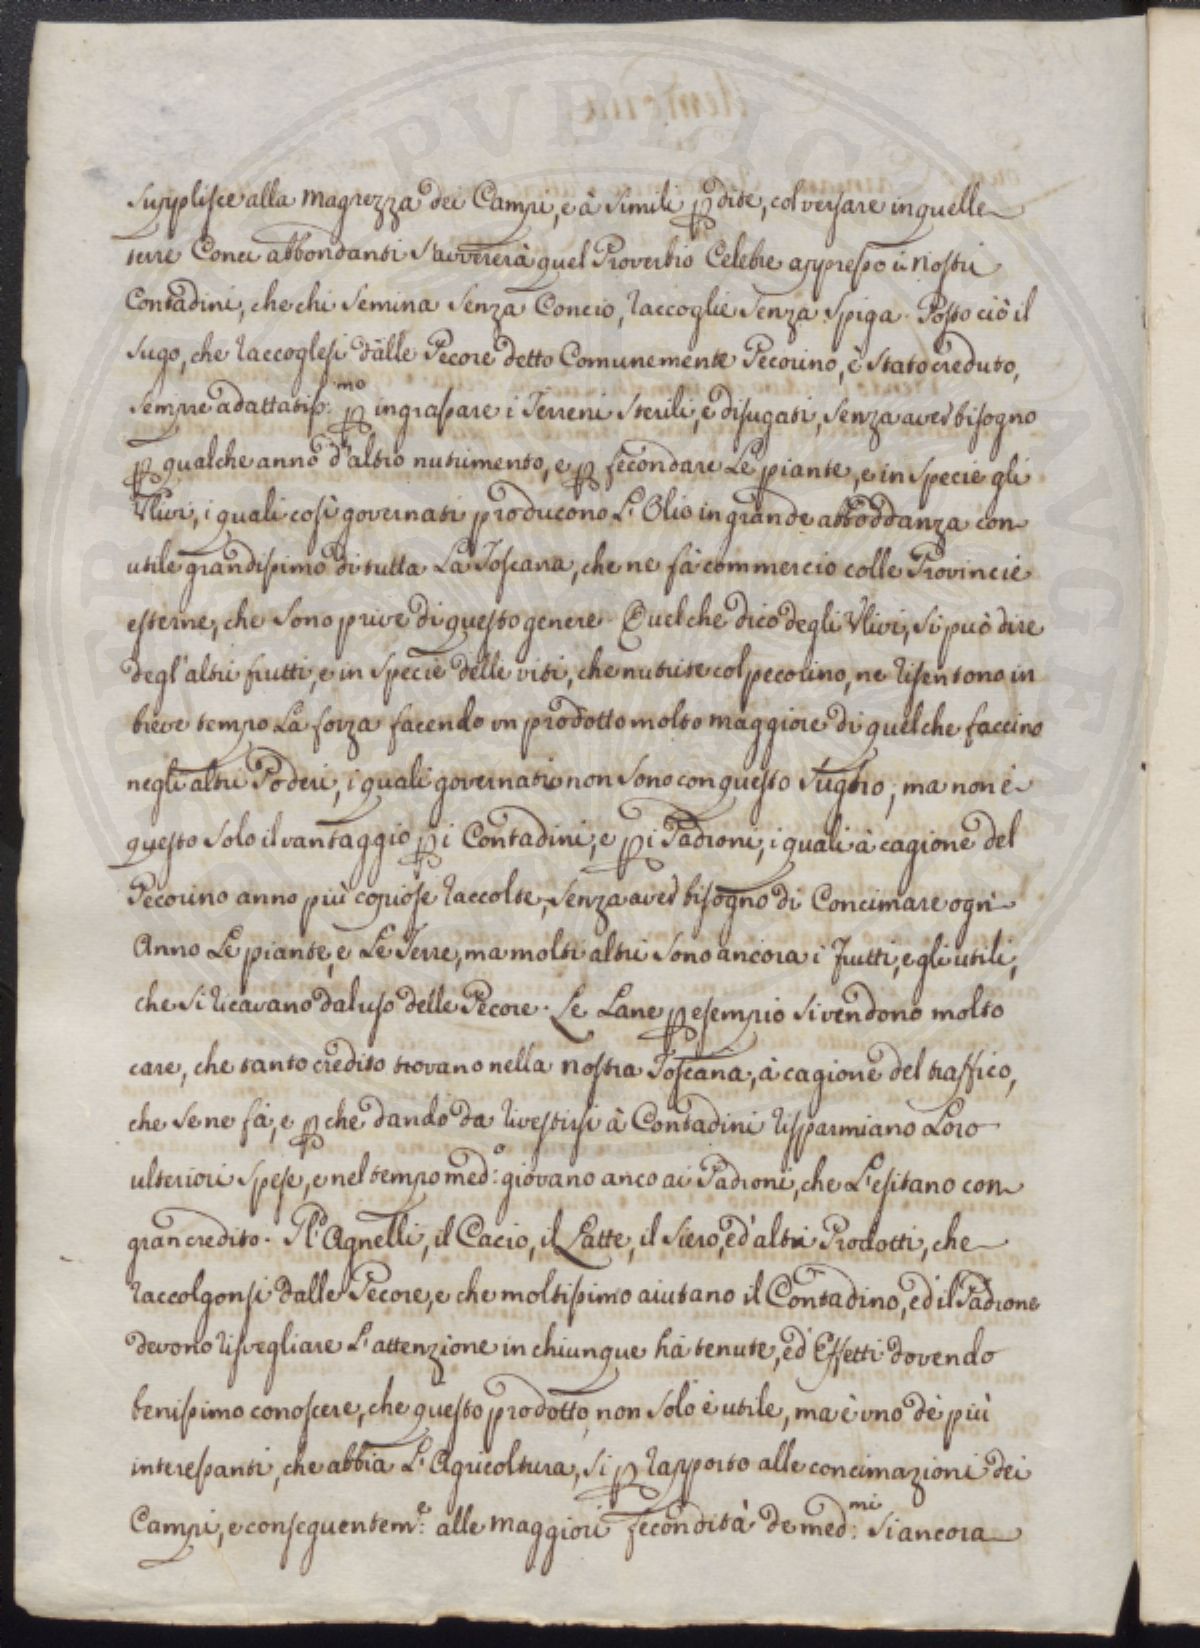 supplisce alla magrezza dei Campi, e à simili ꝑdite, col versare in quelle
terre Conci abbondanti s'avvererà quel Proverbio Celebre appresso i nostri
Contadini, che chi semina senza Concio, raccoglie senza spiga. Posto ciò il
sugo, che raccoglesi dalle Pecore detto Comunemente Pecorino, è stato creduto,
sempre adattatiss:mo ꝑ ingrassare i Terreni sterili, e disugati, senza aver bisogno
ꝑ qualche anno d'altro nutrimento, e ꝑ fecondare Le piante, e in specie gli
Ulivi, i quali così governati producono L'Olio in grande abboddanza con
utile grandissimo di tutta La Toscana, che ne fà commercio colle Provincie
esterne, che sono prive di questo genere. Quel che dico degli Ulivi, si può dire
degl'altri frutti, e in specie delle viti, che nutrite col pecorino, ne risentono in
breve tempo La forza facendo un prodotto molto maggiore di quel che faccino
negli altri Poderi, i quali governati non sono con questo sugho; ma non è
questo solo il vantaggio ꝑ i Contadini, e ꝑ i Padroni, i quali à cagione del
Pecorino anno più copiose raccolte, senza aver bisogno di Concimare ogni
Anno Le piante, e Le Terre, ma molti altri sono ancora i frutti, e gli utili,
che si ricavano dal uso delle Pecore. Le Lane ꝑ esempio si vendono molto
care, che tanto credito trovano nella nostra Toscana, à cagione del traffico,
che se ne fà, e ꝑche dando da rivestirsi à Contadini risparmiano Loro
ulteriori spese, e nel tempo med:o giovano anco ai Padroni, che L'esitano con
gran credito. Gl'Agnelli, il Cacio, il Latte, il siero, ed altri Prodotti, che
raccolgonsi dalle Pecore, e che moltissimo aiutano il Contadino, ed il Padrone
devono risvegliare L'attenzione in chiunque hà tenute, ed Effetti dovendo
benissimo conoscere, che questo prodotto, non solo è utile, ma è uno dè più
interessanti, che abbia L'Agricoltura, si ꝑ rapporto alle concimazioni dei
Campi, e conseguentem:e alle maggiori fecondità de med:mi si ancora